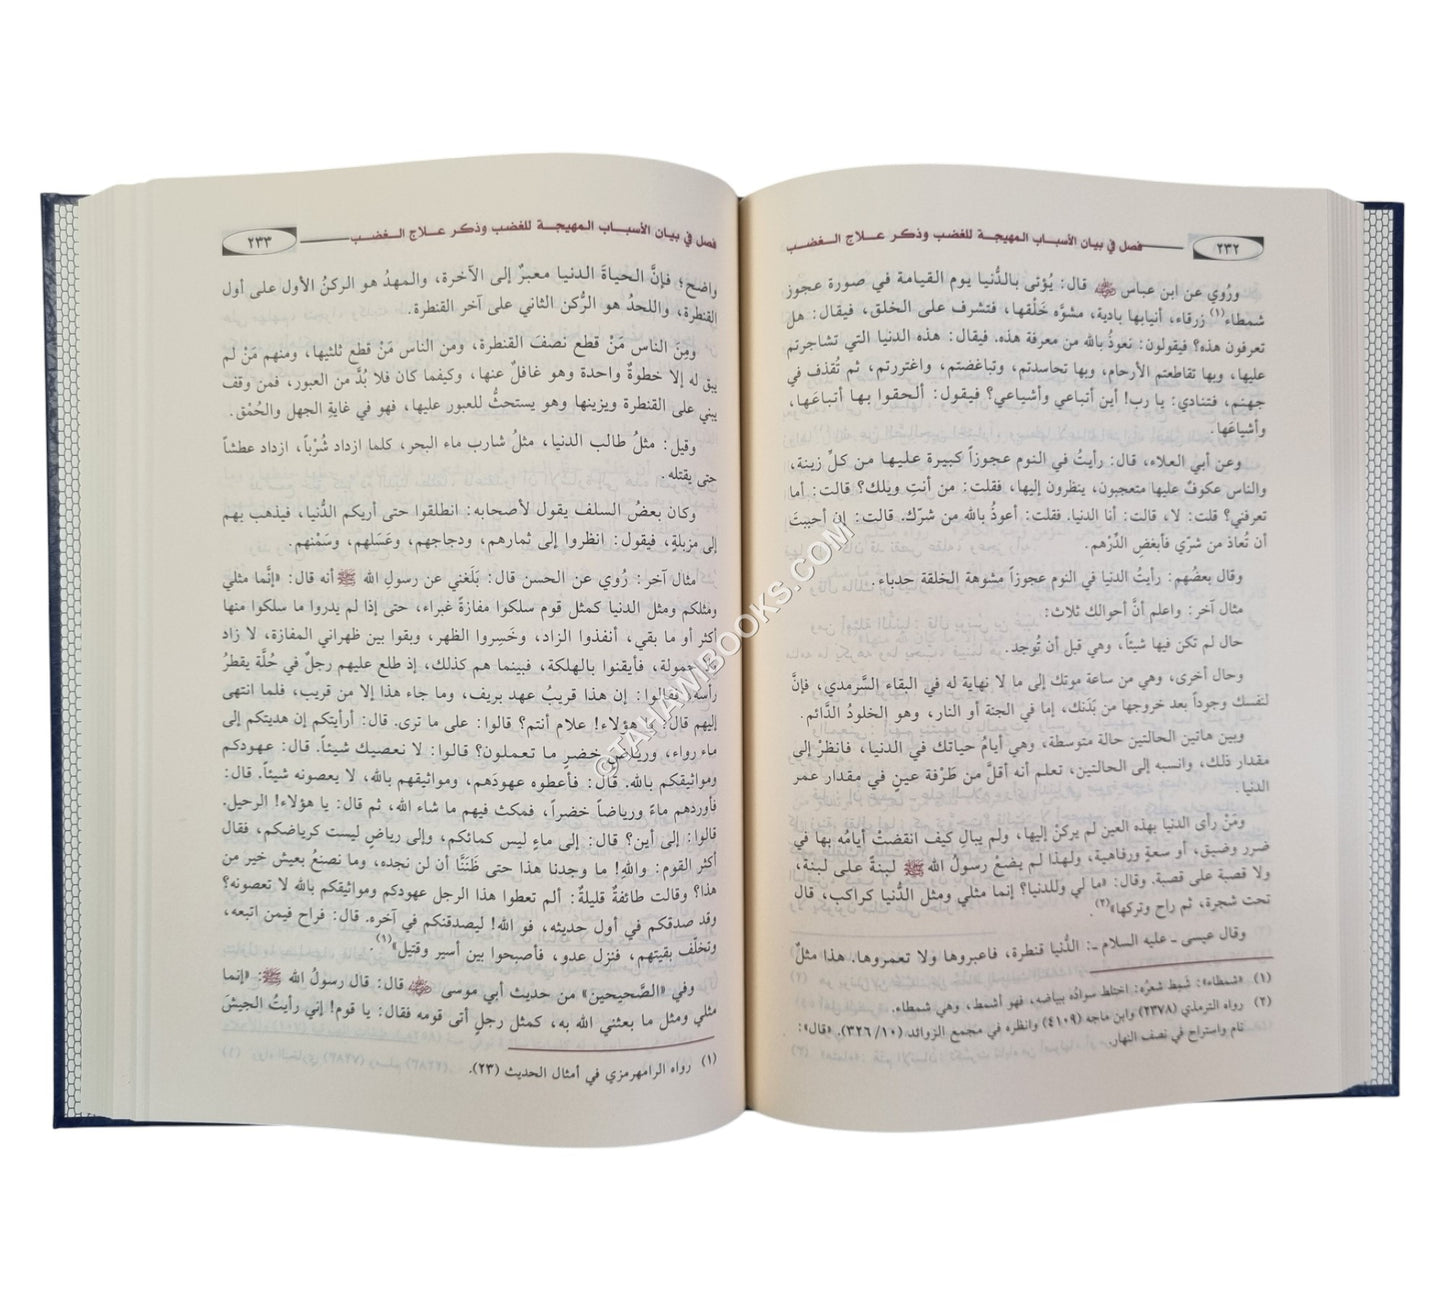 ٢٣٢ فصل في بيان الأسباب المهيجة للغضب وذكر علاج الغضب
ورُوي عن ابن عباس ﷺ قال: يُؤتى بالدُّنيا يوم القيامة في صورة عجوز
شمطاء(١) زرقاء، أنيابها بادية، مشوَّه خَلْقها، فتشرف على الخلق، فيقال: هل
تعرفون هذه؟ فيقولون: نعوذُ بالله من معرفة هذه. فيقال: هذه الدنيا التي تشاجرتم
عليها، وبها تقاطعتم الأرحام، وبها تحاسدتم، وتباغضتم، واغتررتم، ثم تُقذف في
جهنم، فتنادي: يا رب! أين أتباعي وأشياعي؟ فيقول: ألحقوا بها أتباعَها،
وأشياعَها.
وعن أبي العلاء، قال: رأيتُ في النوم عجوزاً كبيرة عليها من كلِّ زينة،
والناس عكوفٌ عليها متعجبون، ينظرون إليها، فقلت: من أنتِ ويلك؟ قالت: أما
تعرفني؟ قلت: لا، قالت: أنا الدنيا. فقلت: أعوذُ بالله من شرّك. قالت: إن أحببتَ
أن تُعاذ من شرّي فأبغضِ الدِّرْهم.
وقال بعضُهم: رأيتُ الدنيا في النوم عجوزاً مشوهة الخلقة حدباء.
مثال آخر: واعلم أنَّ أحوالك ثلاث:
حال لم تكن فيها شيئاً، وهي قبل أن تُوجد.
وحال أخرى، وهي من ساعة موتك إلى ما لا نهاية له في البقاء السَّرمدي، فإنَّ
لنفسك وجوداً بعد خروجها من بَدَنك، إما في الجنة أو النار، وهو الخلودُ الدَّائم.
وبين هاتين الحالتين حالة متوسطة، وهي أيامُ حياتك في الدنيا، فانظرْ إلى
مقدار ذلك، وانسبه إلى الحالتين، تعلم أنه أقلَّ من طَرْفة عينٍ في مقدار عمر
الدنيا.
ومَنْ رأى الدنيا بهذه العين لم يركنْ إليها، ولم يبالِ كيف انقضتْ أيامُه بها في
ضرر وضيق، أو سعةٍ ورفاهية، ولهذا لم يضعْ رسولُ الله ﷺ لبنةً على لبنة،
ولا قصبة على قصبة. وقال: «ما لي وللدنيا؟ إنما مثلي ومثل الدُّنيا كراكب، قال
تحت شجرة، ثم راح وتركها»(٢).
وقال عيسى ـ عليه السلام ـ: الدُّنيا قنطرة، فاعبروها ولا تعمروها. هذا مثلٌ
(١) «شمطاء»: شَمِط شعرُه: اختلط سوادُه ببياضه، فهو أشمط، وهي شمطاء.
(٢) رواه الترمذي (٢٣٧٨) وابن ماجه (٤١٠٩) وانظره في مجمع الزوائد (١٠/ ٣٢٦). «قال»:
نام واستراح في نصف النهار.
فصل في بيان الأسباب المهيجة للغضب وذكر علاج الغضب ٢٣٣
واضح؛ فإنَّ الحياةَ الدنيا معبرٌ إلى الآخرة، والمهدُ هو الركنُ الأول على أول
القنطرة، واللحدُ هو الرُّكن الثاني على آخر القنطرة.
ومِنَ الناس مَنْ قطع نصفَ القنطرة، ومن الناس مَنْ قطع ثلثيها، ومنهم مَنْ لم
يبق له إلا خطوةٌ واحدة وهو غافلٌ عنها، وكيفما كان فلا بُدَّ من العبور، فمن وقف
يبني على القنطرة ويزينها وهو يستحثُّ للعبور عليها، فهو في غايةِ الجهل والحُمْق.
وقيل: مثلُ طالب الدنيا، مثلُ شارب ماء البحر، كلما ازداد شُرْباً، ازداد عطشاً
حتى يقتله.
وكان بعضُ السلف يقول لأصحابه: انطلقوا حتى أريكم الدُّنيا، فيذهب بهم
إلى مزبلةٍ، فيقول: انظروا إلى ثمارهم، ودجاجهم، وعَسَلهم، وسَمْنهم.
مثال آخر: رُوي عن الحسن قال: بَلَغني عن رسولِ الله ﷺ أنه قال: «إنَّما مثلي
ومثلكم ومثل الدنيا كمثل قوم سلكوا مفازةً غبراء، حتى إذا لم يدروا ما سلكوا منها
أكثر أو ما بقي، أنفذوا الزاد، وخَسِروا الظهر، وبقوا بين ظهراني المفازة، لا زاد
ولا حمولة، فأيقنوا بالهلكة، فبينما هم كذلك، إذ طلع عليهم رجلٌ في حُلَّة يقطرُ
رأسُه، فقالوا: إن هذا قريبُ عهد بريف، وما جاء هذا إلا من قريب، فلما انتهى
إليهم قال: يا هؤلاء! علام أنتم؟ قالوا: على ما ترى. قال: أرأيتكم إن هديتكم إلى
ماء رواء، ورياضٍ خضرٍ ما تعملون؟ قالوا: لا نعصيك شيئاً. قال: عهودكم
ومواثيقكم بالله. قال: فأعطوه عهودَهم، ومواثيقهم بالله، لا يعصونه شيئاً. قال:
فأوردهم ماءً ورياضاً خضراً، فمكث فيهم ما شاء الله، ثم قال: يا هؤلاء! الرحيل.
قالوا: إلى أين؟ قال: إلى ماءٍ ليس كمائكم، وإلى رياضٍ ليست كرياضكم، فقال
أكثر القوم: واللهِ! ما وجدنا هذا حتى ظَنَنَّا أن لن نجده، وما نصنعُ بعيش خير من
هذا؟ وقالت طائفةٌ قليلةٌ: ألم تعطوا هذا الرجل عهودكم ومواثيقكم بالله لا تعصونه؟
وقد صدقكم في أول حديثه، فو الله! ليصدقنكم في آخره. قال: فراح فيمن اتبعه،
وتخلَّف بقيتهم، فنزل عدو، فأصبحوا بين أسير وقتيل»(١).
وفي «الصَّحيحين» من حديث أبي موسى ﷺ قال: قال رسولُ الله ﷺ: «إنما
مثلي ومثل ما بعثني الله به، كمثل رجلٍ أتى قومه فقال: يا قوم! إني رأيتُ الجيشَ
(١) رواه الرامهرمزي في أمثال الحديث (٢٣).
©TAHAWIBOOKS.COM